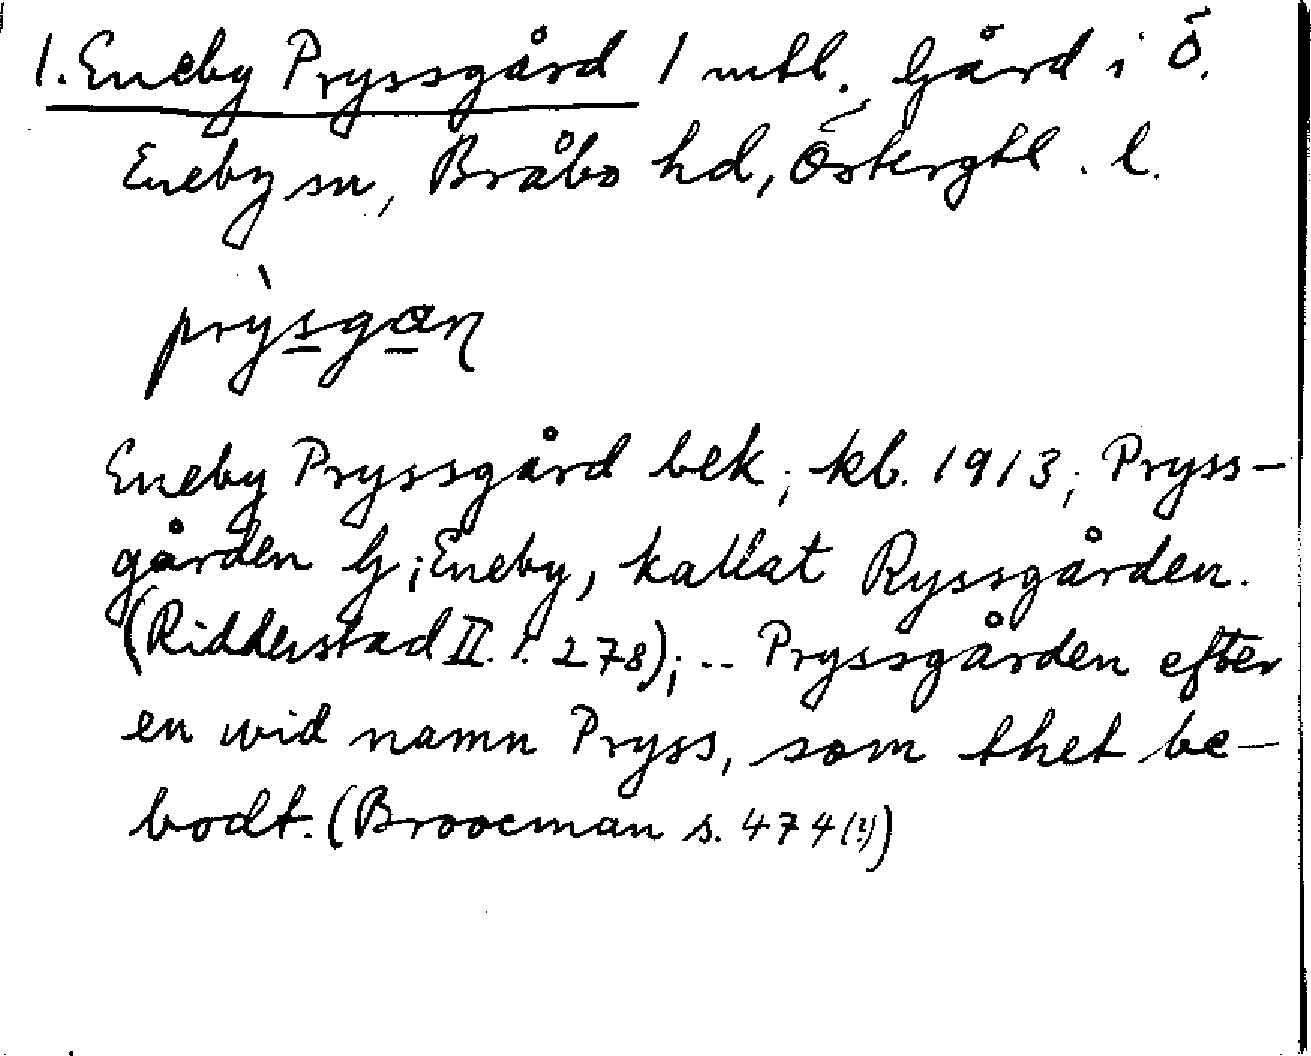 1. Eneby Pryssgård 1 mtl. Gård i Ö.
Eneby sn, Bråbo hd, Östergtl. l.
Eneby Pryssgård bek; kb. 1913; Pryss-
gården G; Eneby, kallat Ryssgården.
(Ridderstad II. 1. 278); .. Pryssgården efter
en wid namn Pryss, som thet be-
bodt. (Broocman s. 474 (?))